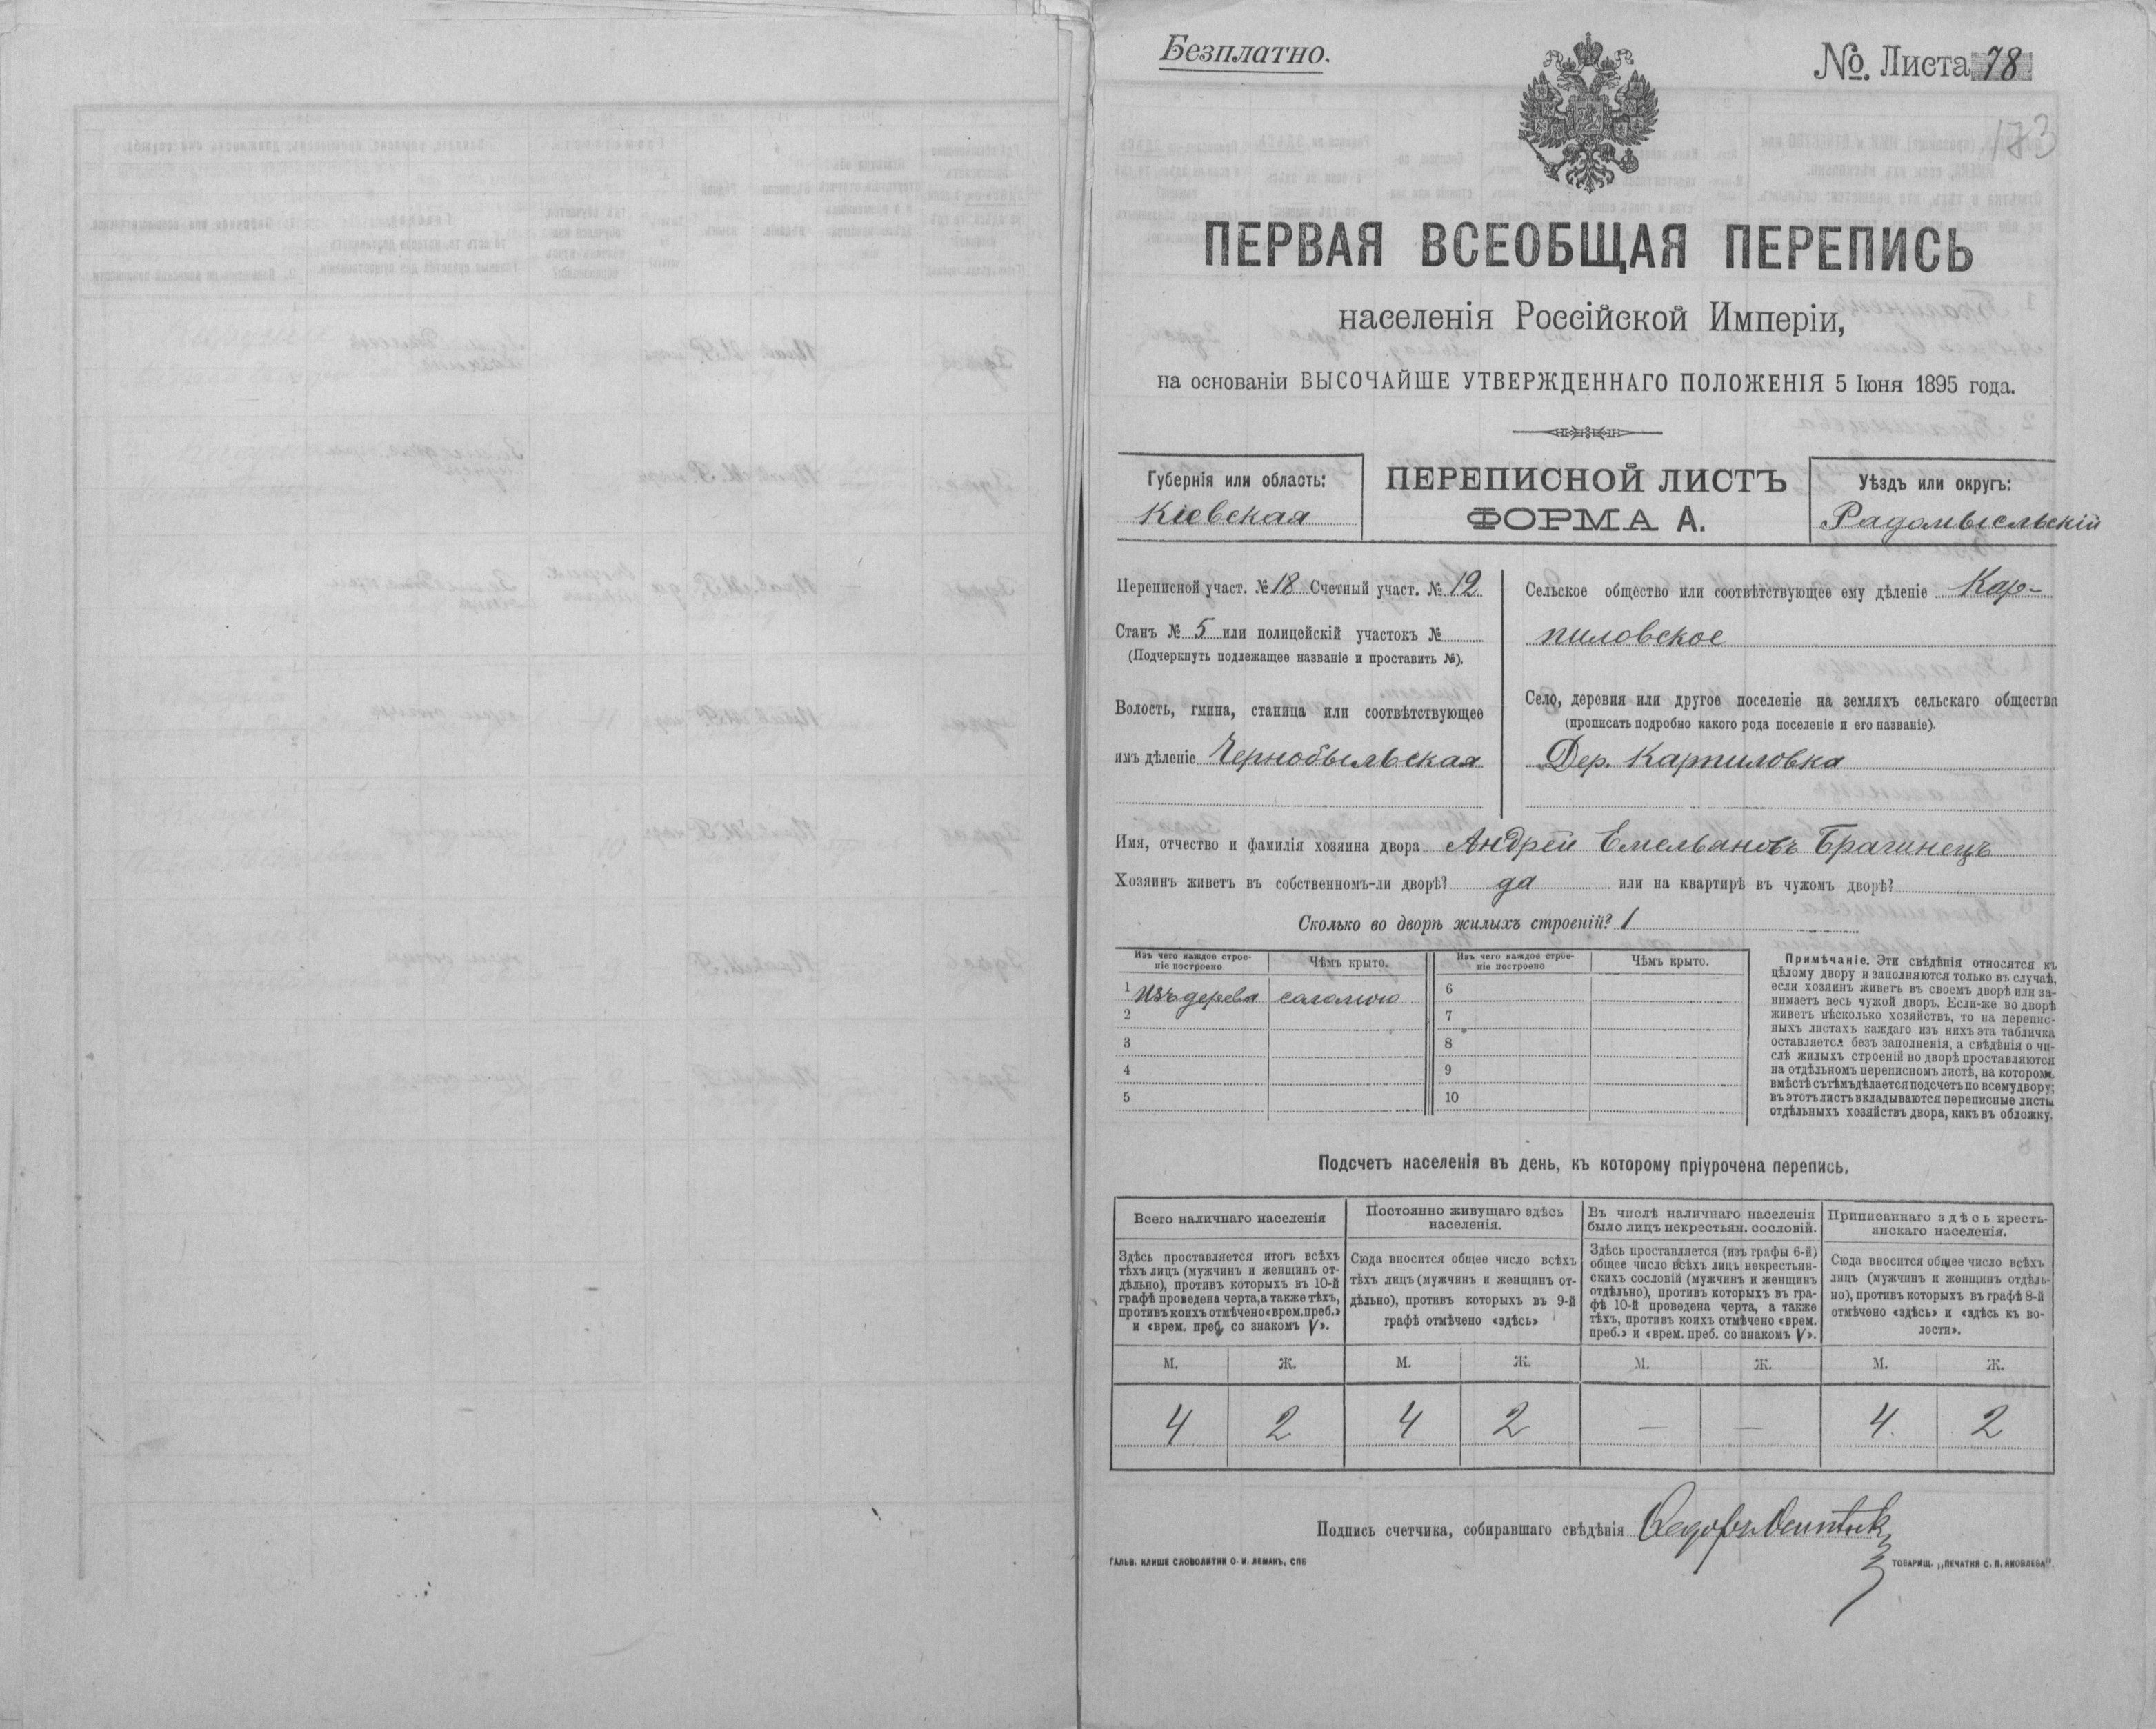 Безплатно.
№. Листа 78
173
ПЕРВАЯ ВСЕОБЩАЯ ПЕРЕПИСЬ
населенія Россійской Имперіи,
на основаніи ВЫСОЧАЙШЕ УТВЕРЖДЕННАГО ПОЛОЖЕНІЯ 5 Іюня 1895 года.
Губернія или область:
Кіевская
ПЕРЕПИСНОЙ ЛИСТЪ
ФОРМА А.
Уѣздъ или округъ:
Радомысльскій
Переписной участ. № 18 Счетный участ. № 12
Станъ № 5 или полицейскій участокъ №
(Подчеркнуть подлежащее названіе и проставить №).
Волость, гмина, станица или соотвѣтствующее
имъ дѣленіе Чернобыльская
Сельское общество или соотвѣтствующее ему дѣленіе Кар-
пиловское
Село, деревня или другое поселеніе на земляхъ сельскаго общества
(прописать подробно какого рода поселеніе и его названіе).
Дер. Карпиловка
Имя, отчество и фамилія хозяина двора Андрей Емельяновъ Брагинецъ
Хозяинъ живетъ въ собственномъ-ли дворѣ? да или на квартирѣ въ чужомъ дворѣ?
Сколько во дворѣ жилыхъ строеній? 1
Изъ чего каждое строе-
ніе построено
Чѣмъ крыто.
Изъ чего каждое строе-
ніе построено
Чѣмъ крыто.
1 изъ дерева саломою
2
3
4
5
6
7
8
9
10
Примѣчаніе. Эти свѣдѣнія относятся къ
цѣлому двору и заполняются только въ случаѣ,
если хозяинъ живетъ въ своемъ дворѣ или за-
нимаетъ весь чужой дворъ. Если-же во дворѣ
живетъ нѣсколько хозяйствъ, то на перепис-
ныхъ листахъ каждаго изъ нихъ эта табличка
оставляется безъ заполненія, а свѣдѣнія о чи-
слѣ жилыхъ строеній во дворѣ проставляются
на отдѣльномъ переписномъ листѣ, на которомъ
вмѣстѣ съ тѣмъ дѣлается подсчетъ по всему двору;
въ этотъ листъ вкладываются переписные листы
отдѣльныхъ хозяйствъ двора, какъ въ обложку.
Подсчетъ населенія въ день, къ которому пріурочена перепись.
Всего наличнаго населенія
Здѣсь проставляется итогъ всѣхъ
тѣхъ лицъ (мужчинъ и женщинъ от-
дѣльно), противъ которыхъ въ 10-й
графѣ проведена черта, а также тѣхъ,
противъ коихъ отмѣчено «врем. преб.»
и «врем. преб. со знакомъ V».
Постоянно живущаго здѣсь
населенія.
Сюда вносится общее число всѣхъ
тѣхъ лицъ (мужчинъ и женщинъ от-
дѣльно), противъ которыхъ въ 9-й
графѣ отмѣчено «здѣсь»
Въ числѣ наличнаго населенія
было лицъ некрестьян. сословій.
Здѣсь проставляется (изъ графы 6-й)
общее число всѣхъ лицъ некрестьян-
скихъ сословій (мужчинъ и женщинъ
отдѣльно), противъ которыхъ въ гра-
фѣ 10-й проведена черта, а также
тѣхъ, противъ коихъ отмѣчено «врем.
преб.» и «врем. преб. со знакомъ V».
Приписаннаго здѣсь кресть-
янскаго населенія.
Сюда вносится общее число всѣхъ
лицъ (мужчинъ и женщинъ отдѣль-
но), противъ которыхъ въ графѣ 8-й
отмѣчено «здѣсь» и «здѣсь къ во-
лости».
М. Ж. М. Ж. М. Ж. М. Ж.
4 2 4 2 — — 4. 2
Подпись счетчика, собиравшаго свѣдѣнія
ГАЛЬВ. КЛИШЕ СЛОВОЛИТНИ О. И. ЛЕМАНЪ, СПБ
ТОВАРИЩ. „ПЕЧАТНЯ С. П. ЯКОВЛЕВА".